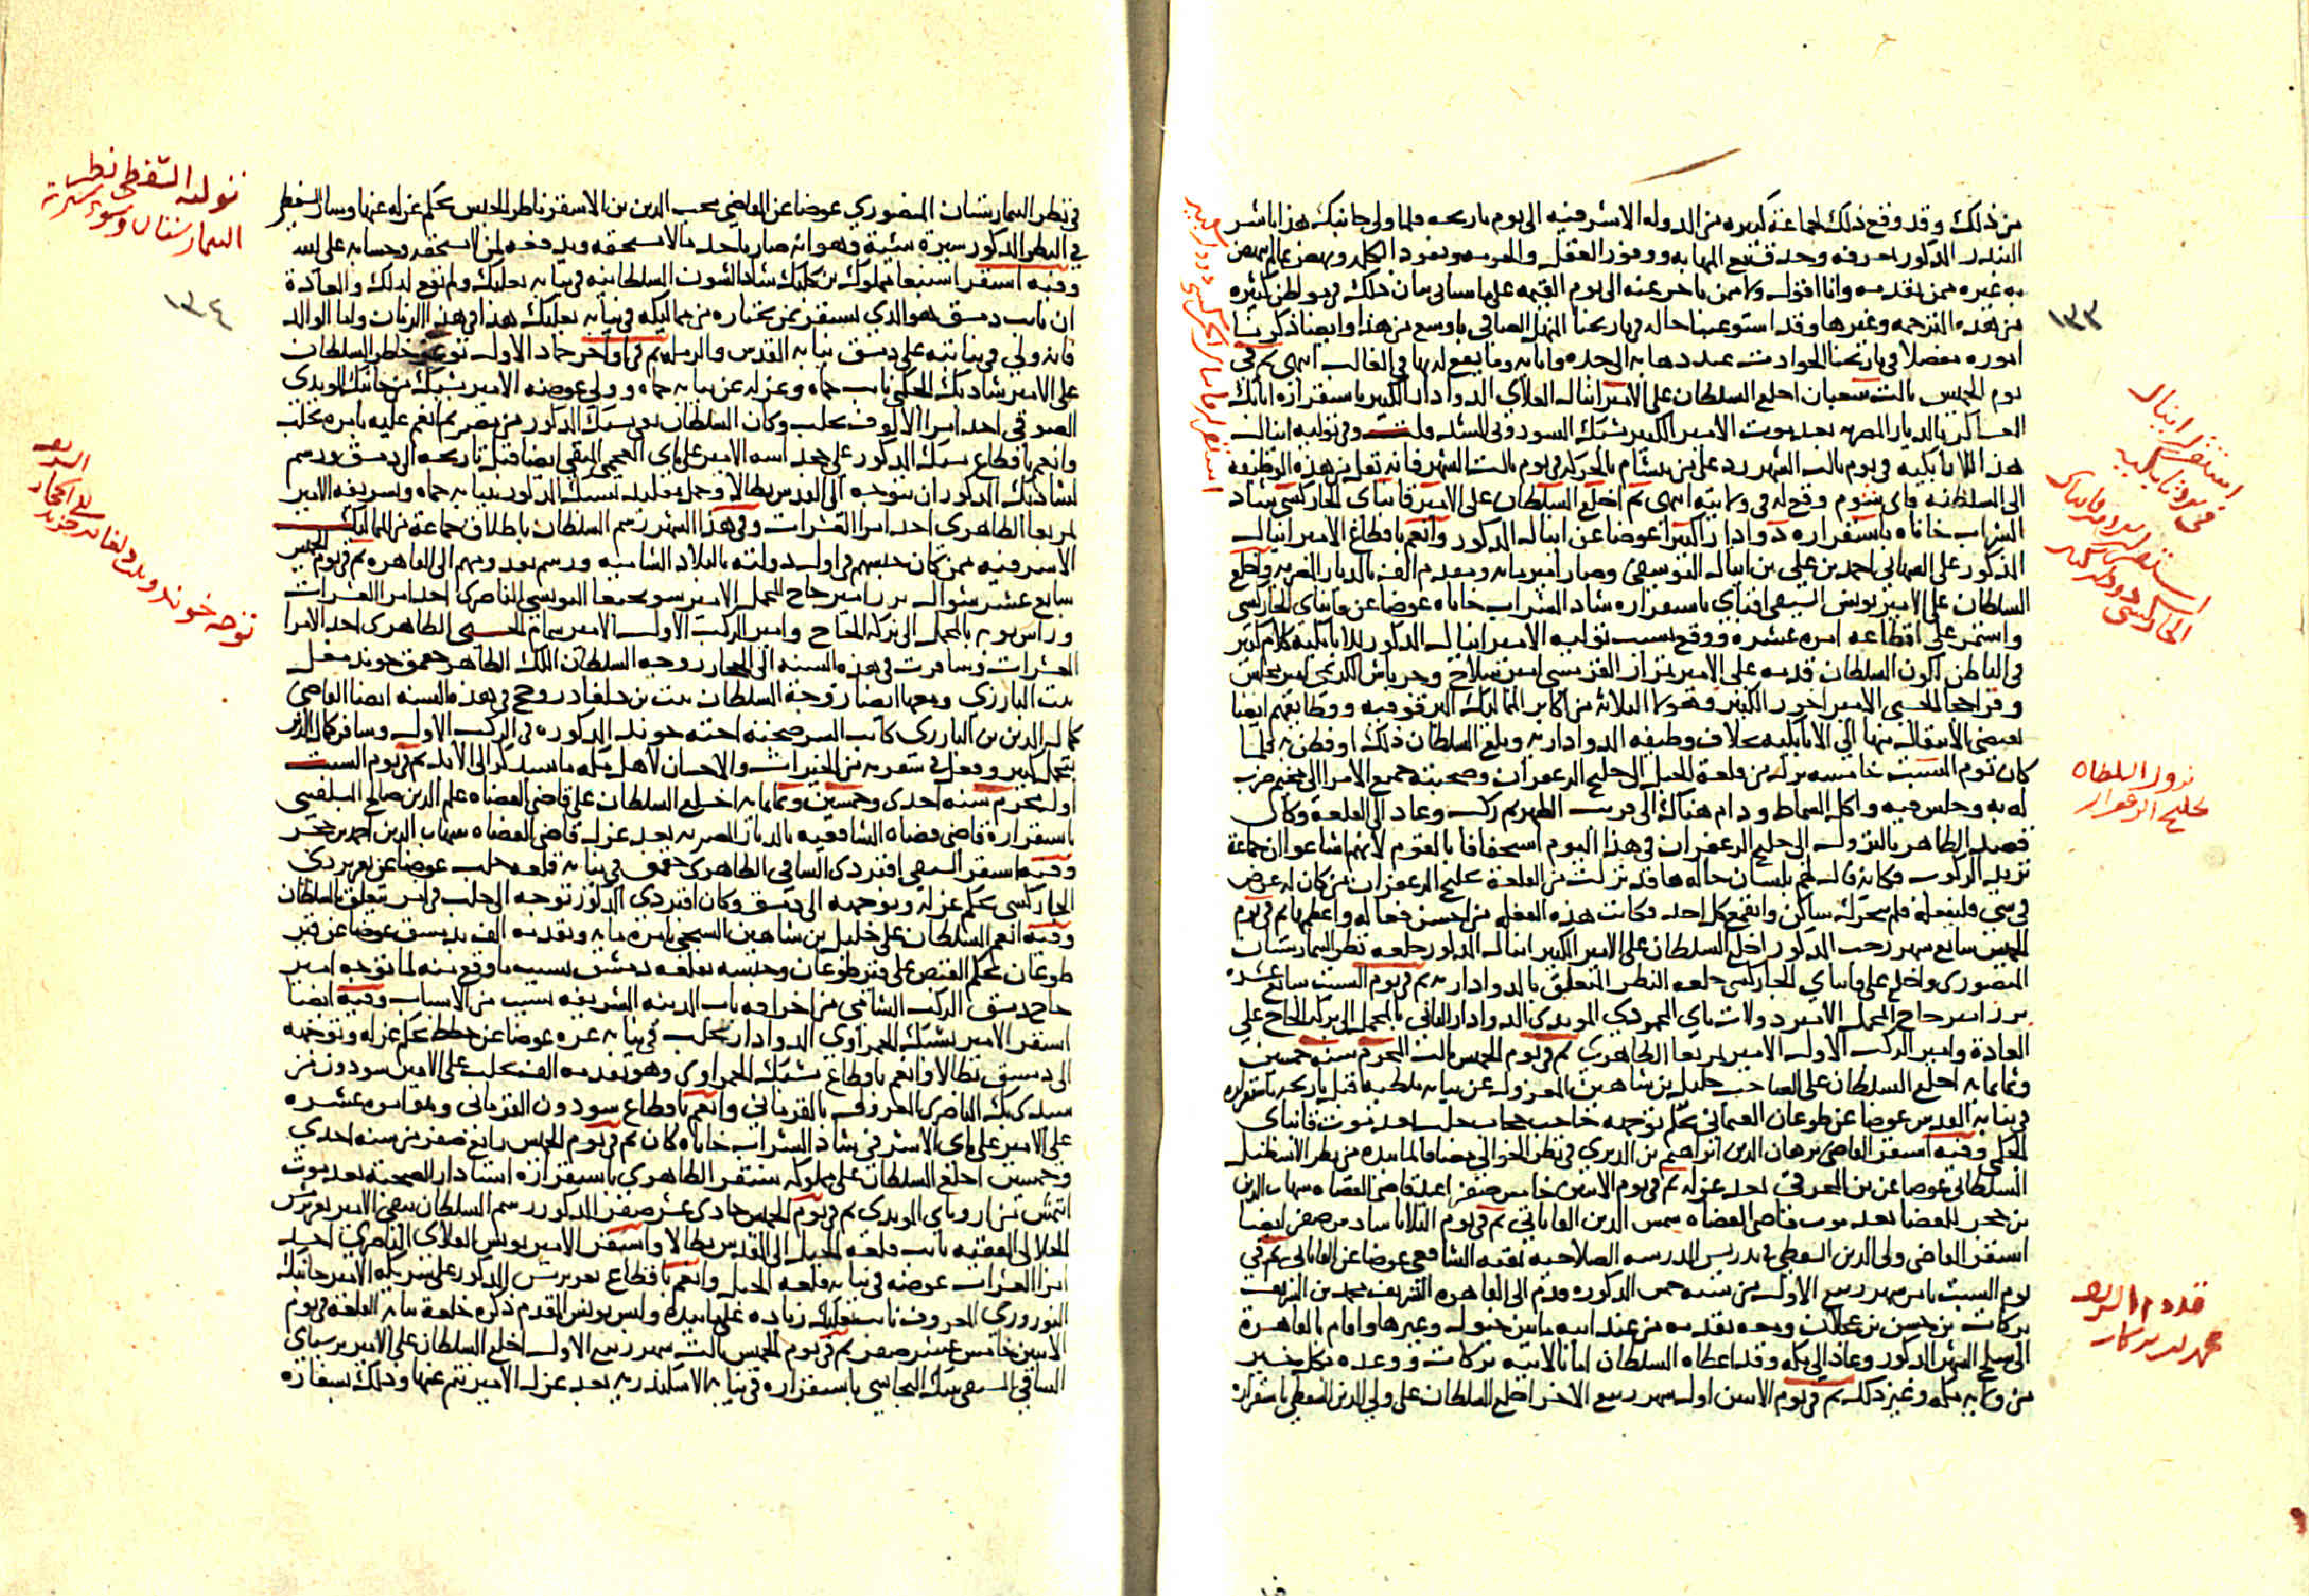 من ذلك وقد وقع ذلك لجماعة كبيره من الدوله الاشرفيه الى يوم تاريخه فلما ولى جانبك هذا باشر
البندر المذكور بحرفه وحدق مع المهابه ووفور العقل والحرمه ونفوذ الكلمه ونهض بما لم ينهض
به غيره ممن تقدمه وانا اقول ولا ممن ياخر عنه الى يوم القيمه على ما سياتى بيان ذلك فى مواطن كثيره
من هذه الترجمه وغيرها وقد استوعبنا حاله فى تاريخنا المنهل الصافى باوسع من هذا وايضا ذكرنا
اموره مفصلا فى تاريخنا الحوادث عند دهابه الى جده وايابه وما يقع له بها فى الغالب انتهى ثم فى
يوم الخميس ثالث شعبان اخلع السلطان على الامير اينال العلاى الدوادار الكبير باستقراره اتابك
العساكر بالديار المصريه بعد موت الامير الكبير يشبك السودونى المشد قلت وفى توليه اينال
هذا للاتابكيه فى يوم ثالث الشهر رد على من يتشام بالحركه فى يوم ثالث الشهر فانه نقل من هذه الوظيفه
الى السلطنه فاى شوم وقع له فى ولايته انتهى ثم اخلع السلطان على الامير قانباى الجاركسى شاد
الشراب خاناه باستقراره دوادارا كبيرا عوضا عن اينال المذكور وانعم باقطاع الامير اينال
المذكور على الشهابى احمد بن على بن اينال اليوسفى وصار امير مايه ومقدم الف بالديار المصريه واخلع
السلطان على الامير يونس السيفى اقباى باستقراره شاد الشراب خاناه عوضا عن قانباى الجاركسى
واستمر على اقطاعه امره عشره ووقع بسبب توليه الامير اينال المذكور للاتابكيه كلام كثير
فى الباطن لكون السلطان قدمه على الامير تمراز القرمشى امير سلاح وجرباش الكريمى امير مجلس
وقراخجا الحسنى الامير اخور الكبير وهولا الثلاثه من اكابر المماليك البرقوقيه ووظايفهم ايضا
تقتضى الانتقال منها الى الاتابكيه بخلاف وظيفه الدواداريه وبلغ السلطان ذلك او فطن به فلما
كان يوم السبت خامسه نزل من قلعة الجبل الى خليج الزعفران وصحبته جميع الامرا الى مخيم ضرب
له به وجلس فيه واكل السماط ودام هناك الى قريب الظهر ثم ركب وعاد الى القلعة وكان
قصد الظاهر بالنزول الى خليج الزعفران فى هذا اليوم استخفافا بالقوم لانهم اشاعوا ان جماعة
تريد الركوب فكانه قال لهم بلسان حاله ها قد نزلت من القلعة بخليج الزعفران من كان له غرض
فى شى فليفعله فلم يتحرك ساكن وانقمع كل احد وكانت هذه الفعله من احسن فعاله واعظمها ثم فى يوم
الخميس سابع شهر رجب المذكور اخلع السلطان على الامير الكبير اينال المذكور خلعه نظر البيمارستان
المنصورى واخلع على قانباى الجاركسى خلعه النظر المتعلق بالدواداريه ثم فى يوم السبت سابع عشره
برز امير حاج المحمل الامير دولات باى المحمودى المويدى الدوادار الثانى بالمحمل الى بركه الحاج على
العادة وامير الركب الاول الامير تمربغا الظاهرى ثم فى يوم الخميس ثالث المحرم سنه خمسين
وثمانمايه اخلع السلطان على الصاحب خليل بن شاهين المعزول عن نيابه ملطيه قبل تاريخه باستقراره
فى نيابه القدس عوضا عن طوغان العثمانى بحكم توجهه حاجب حجاب حلب بعد موت قانباى
الجكمى وفيه استقر القاضى برهان الدين ابراهيم بن الديرى فى نظر الجوالى مضافا لما بيده من نظر الاسطبل
السلطانى عوضا عن بن المحرقى بعد عزله ثم فى يوم الاثنين خامس صفر اعيد قاضى القضاه شهاب الدين
بن حجر للقضا بعد موت قاضى القضاه شمس الدين القاياتى ثم فى يوم الثلاثا سادس صفر ايضا
استقر القاضى ولى الدين السفطى فى تدريس المدرسه الصلاحيه بقبه الشافعى عوضا عن القاياتى ثم فى
يوم السبت ثامن شهر ربيع الاول من سنه خمسين المذكوره قدم الى القاهره الشريف محمد بن الشريف
بركات بن حسن بن عجلان ومعه تقدمه من عند ابيه ما بين خيول وغيرها واقام بالقاهرة
الى سلخ الشهر المذكور وعاد الى مكه وقد اعطاه السلطان امانا لابيه بركات ووعده بكل خير
من ولايه مكه وغير ذلك ثم فى يوم الاثنين اول شهر ربيع الاخر اخلع السلطان على ولى الدين السفطى باستقراره
١٣٣
استقرار اينال
فى الاتابكيه
نزول السلطان
خليج الزعفران
قدوم الشريف
محمد بن بركات
فى نظر البيمارستان المنصورى عوضا عن القاضى محب الدين بن الاشقر ناظر الجيش بحكم عزله عنها وسار السفطى
فى النظر المذكور سيرة سيئة وهو انه صار ياخذ ممن لا يستحقه ويدفعه لمن لا يستحقه وحسابه على الله
وفيه استقر اسنبغا مملوك بن كلبك شاد الشون السلطانيه فى نيابه بعلبك ولم تقع لذلك والعادة
ان نايب دمشق هو الذى يستقر بمن يختاره من مماليكه فى نيابه بعلبك هذا فى هذا الزمان واما الوالد
فانه ولى فى نيابته على دمشق نيابه القدس والرمله ثم فى اواخر جماد الاول توغر خاطر السلطان
على الامير شادبك الجكمى نايب حماه وعزله عن نيابه حماه وولى عوضه الامير يشبك من جانبك المويدى
الصوفى احد امرا الالوف بحلب وكان السلطان نفى يشبك المذكور من مصر ثم انعم عليه بامره بحلب
وانعم باقطاع يشبك المذكور على الامير على باى العجمى المويدى ايضا قبل تاريخه الى دمشق ورسم
لشادبك المذكور ان يتوجه الى القدس بطالا وحمل تقليد يشبك المذكور بنيابه حماه وتشريفه الامير
تمربغا الظاهرى احد امرا العشرات وفى هذا الشهر رسم السلطان باطلاق جماعة من المماليك
الاشرفيه ممن كان حبسهم فى اول دولته بالبلاد الشاميه ورسم بقدومهم الى القاهره ثم فى يوم الخميس
سابع عشر شوال برز امير حاج المحمل الامير سونجبغا اليونسى الناصرى احد امرا العشرات
وراس نوبه بالمحمل الى بركه الحاج وامير الركب الاول الامير سمام الحسنى الظاهرى احد الامرا
العشرات وسافرت فى هذه السنه الى الحجاز زوجه السلطان الملك الظاهر جقمق خوند مغل
بنت البارزى ومعها ايضا زوجة السلطان بنت بن دلغادر وحج فى هذه السنه ايضا القاضى
كمال الدين بن البارزى كاتب السر صحبته اخته خوند المذكوره فى الركب الاول وسافر كمال الدين
بتجمل كبير وفعل فى سفرته من الخيرات والاحسان لاهل مكه ما سيذكر الى الابد ثم فى يوم السبت
اول محرم سنه احدى وخمسين وثمانمايه اخلع السلطان على قاضى القضاه علم الدين صالح البلقينى
باستقراره قاضى قضاه الشافعيه بالديار المصريه بعد عزل قاضى القضاه شهاب الدين احمد بن حجر
وفيه استقر السيفى اقبردى الساقى الظاهرى جقمق فى نيابه قلعه حلب عوضا عن تغرى بردى
الجاركسى بحكم عزله وتوجهه الى دمشق وكان اقبردى المذكور توجه الى حلب فى امر يتعلق بالسلطان
وفيه انعم السلطان على خليل بن شاهين الشيخى بامره مايه وتقدمه الف بدمشق عوضا عن قيز
طوغان بحكم القبض على قيز طوغان وحبسه بقلعه دمشق بسبب ما وقع منه لما توجه امير
حاج دمشق الركب الشامى من اخراقه باب المدينه الشريفه بسبب من الاسباب وفيه ايضا
استقر الامير يشبك الحمزاوى الدوادار بحلب فى نيابه غزه عوضا عن حطط بحكم عزله وتوجهه
الى دمشق بطالا وانعم باقطاع يشبك الحمزاوى وهو تقدمه الف بحلب على الامير سودون من
سيدى بك الناصرى المعروف بالقرمانى وانعم باقطاع سودون القرمانى وهو امره عشره
على الامير على باى الاشرفى شاد الشراب خاناه كان ثم فى يوم الخميس رابع صفر من سنه احدى
وخمسين اخلع السلطان على مملوكه سنقر الظاهرى باستقراره استادار الصحبه بعد موت
ايتمش من ازوباى المويدى ثم فى يوم الخميس حادى عشر صفر المذكور رسم السلطان بنفى الامير تغرى برمش
الجلالى الفقيه نايب قلعه الجبل الى القدس بطالا واستقر الامير يونس العلاى الناصرى احد
امرا العشرات عوضه فى نيابه قلعه الجبل وانعم باقطاع تغرى برمش المذكور على شريكه الامير جانبك
النوروزى المعروف بنايب بعلبك زياده على ما بيده ولبس يونس المقدم ذكره خلعة نيابه القلعه فى يوم
الاثنين خامس عشر صفر ثم فى يوم الخميس ثالث شهر ربيع الاول اخلع السلطان على الامير برسباى
الساقى السيفى تنبك البجاسى باستقراره فى نيابه الاسكندريه بعد عزل الامير تنم عنها وذلك بسفاره
توليه السفطى نظر
البيمارستان وسوء سيرته
١٣٤